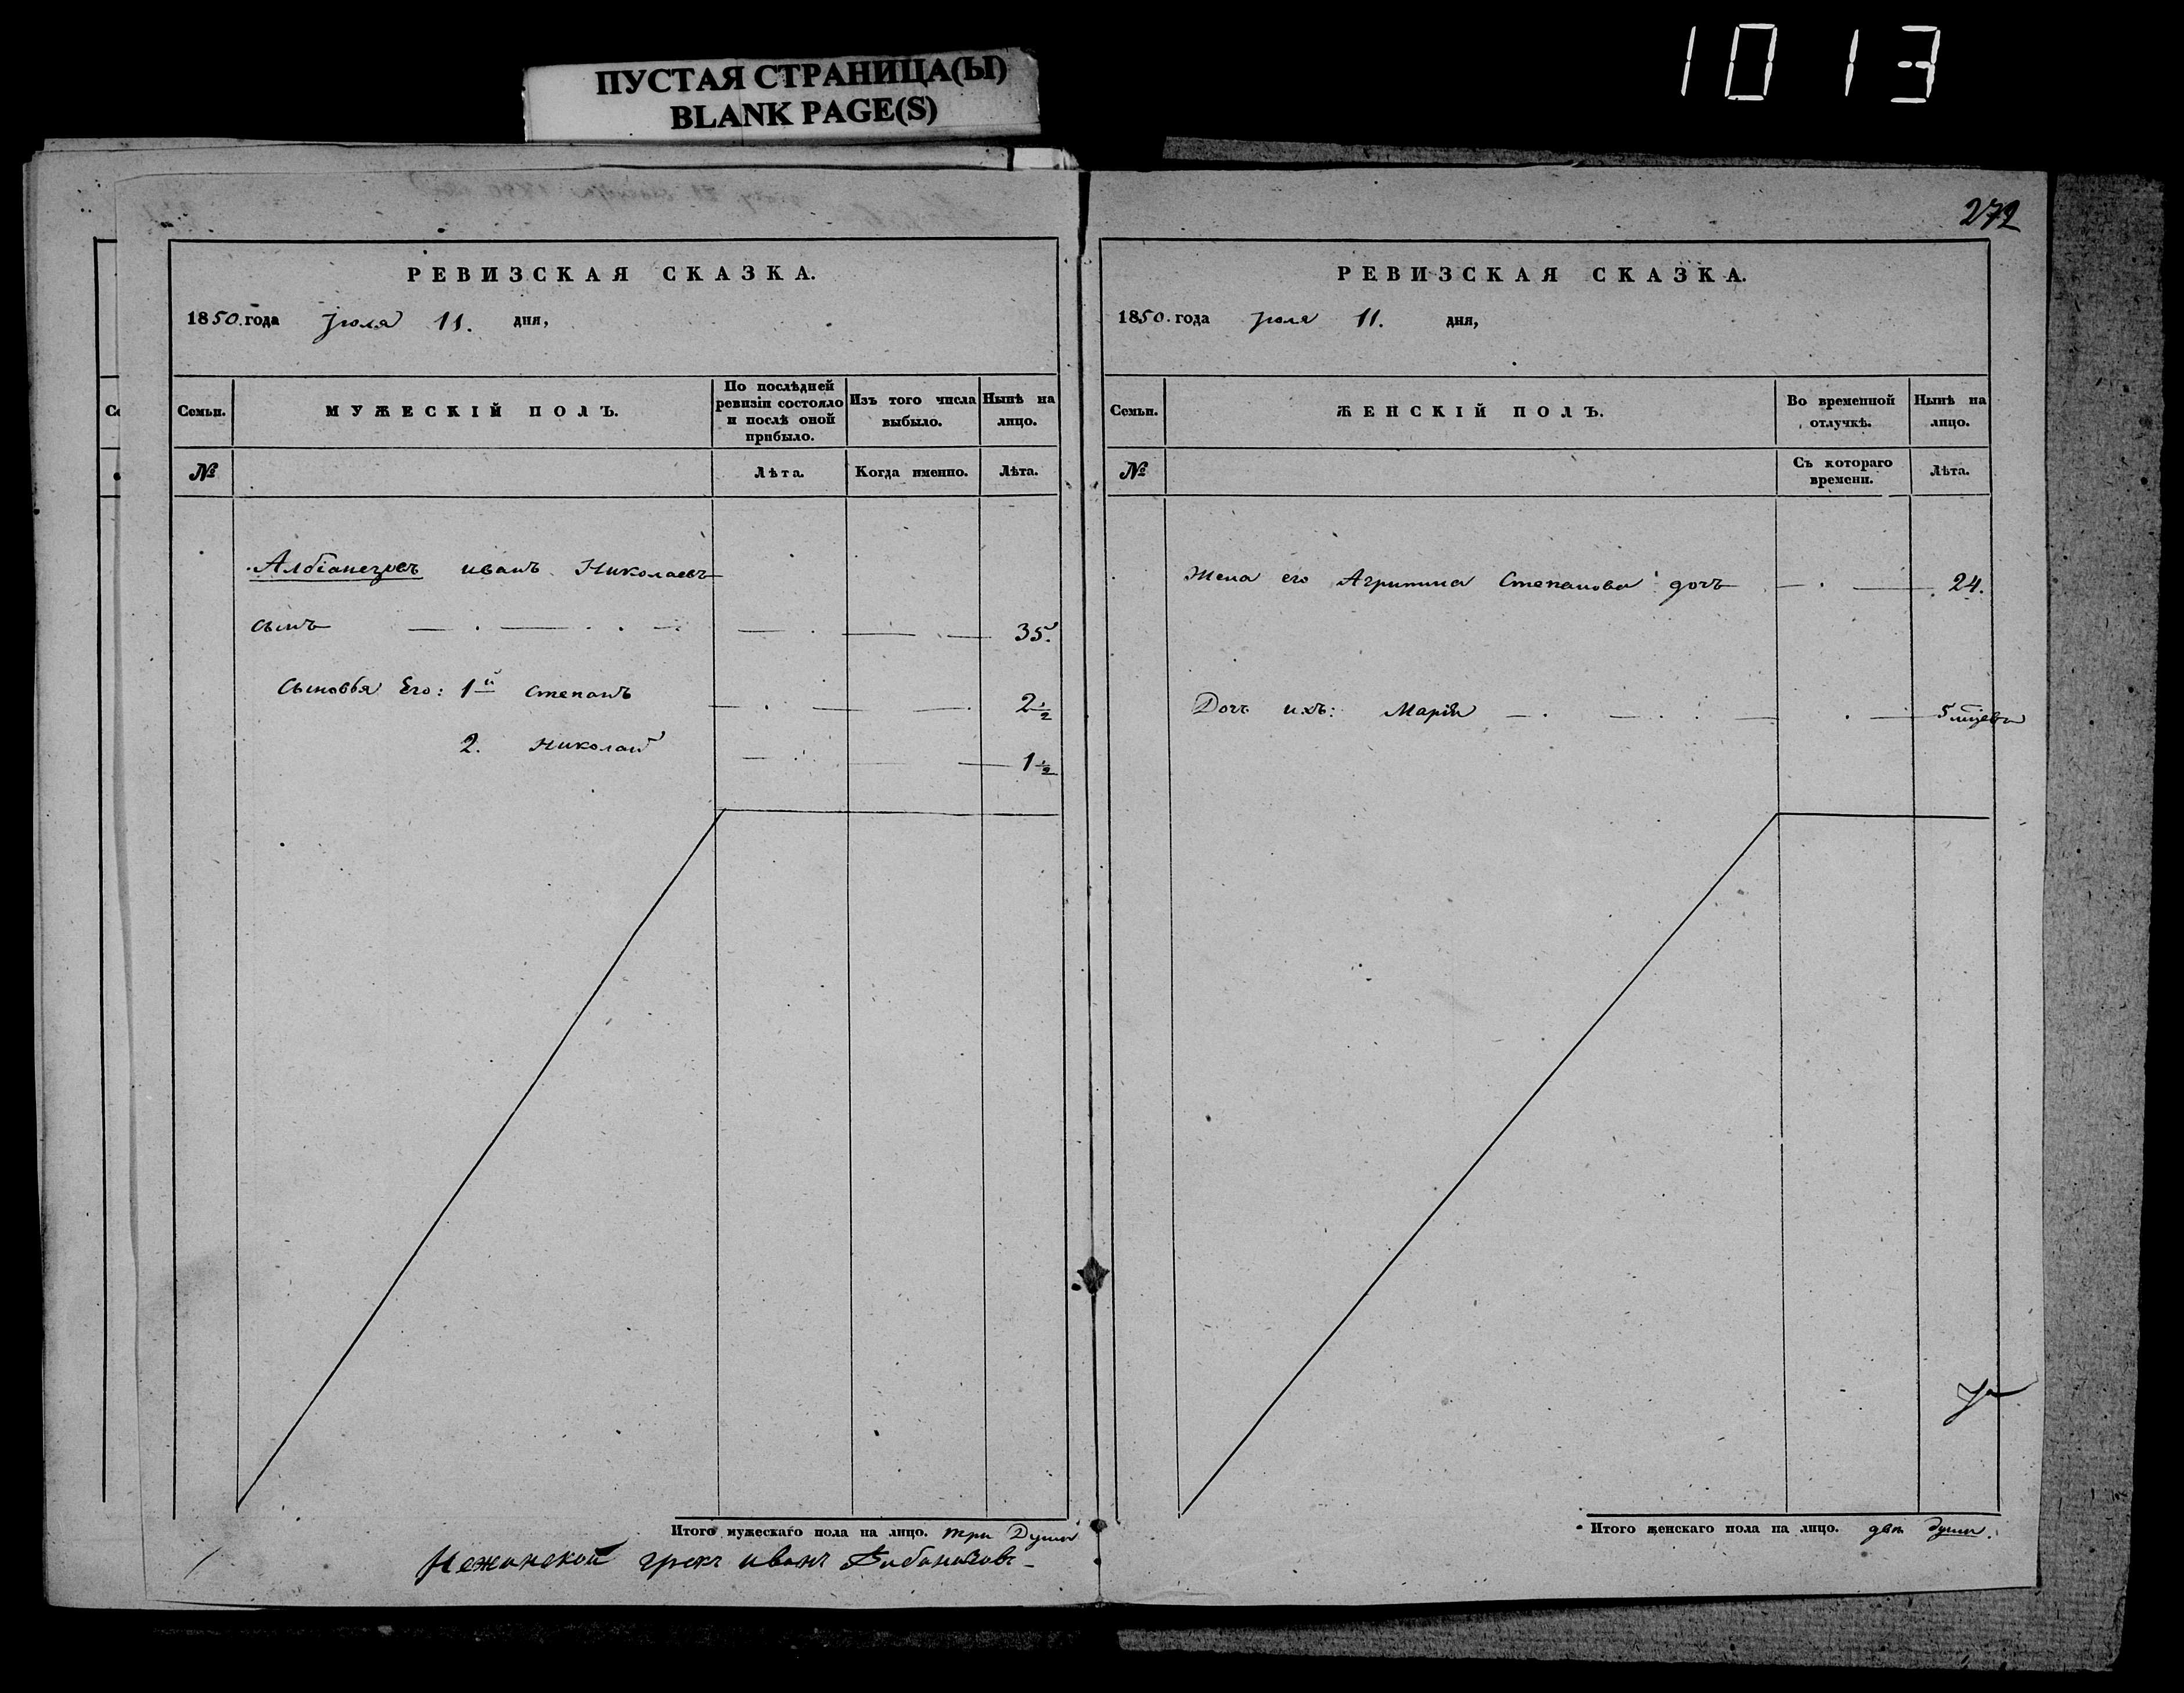 ПУСТАЯ СТРАНИЦА(Ы)
BLANK PAGE(S)
1013
272
РЕВИЗСКАЯ СКАЗКА.
1850. года Іюля 11. дня,
Семьи.
МУЖЕСКІЙ ПОЛЪ.
По послѣдней ревизіи состояло и послѣ оной прибыло.
Изъ того числа выбыло.
Нынѣ на лицо.
№
Лѣта.
Когда именно.
Лѣта.
Албіанезовъ иванъ Николаевъ
сынъ 35.
Сыновья Его: 1й степанъ 2 1/2
2. Николай 1 1/2
Итого мужескаго пола на лицо. три Души
Нежинской грекъ иванъ
РЕВИЗСКАЯ СКАЗКА.
1850. года Іюля 11. дня,
Семьи.
ЖЕНСКІЙ ПОЛЪ.
Во временной отлучкѣ.
Нынѣ на лицо.
№
Съ котораго времени.
Лѣта.
Жена его Агрипина Степанова дочь 24.
Дочь ихъ: Марія 5
Итого женскаго пола на лицо. двѣ души.